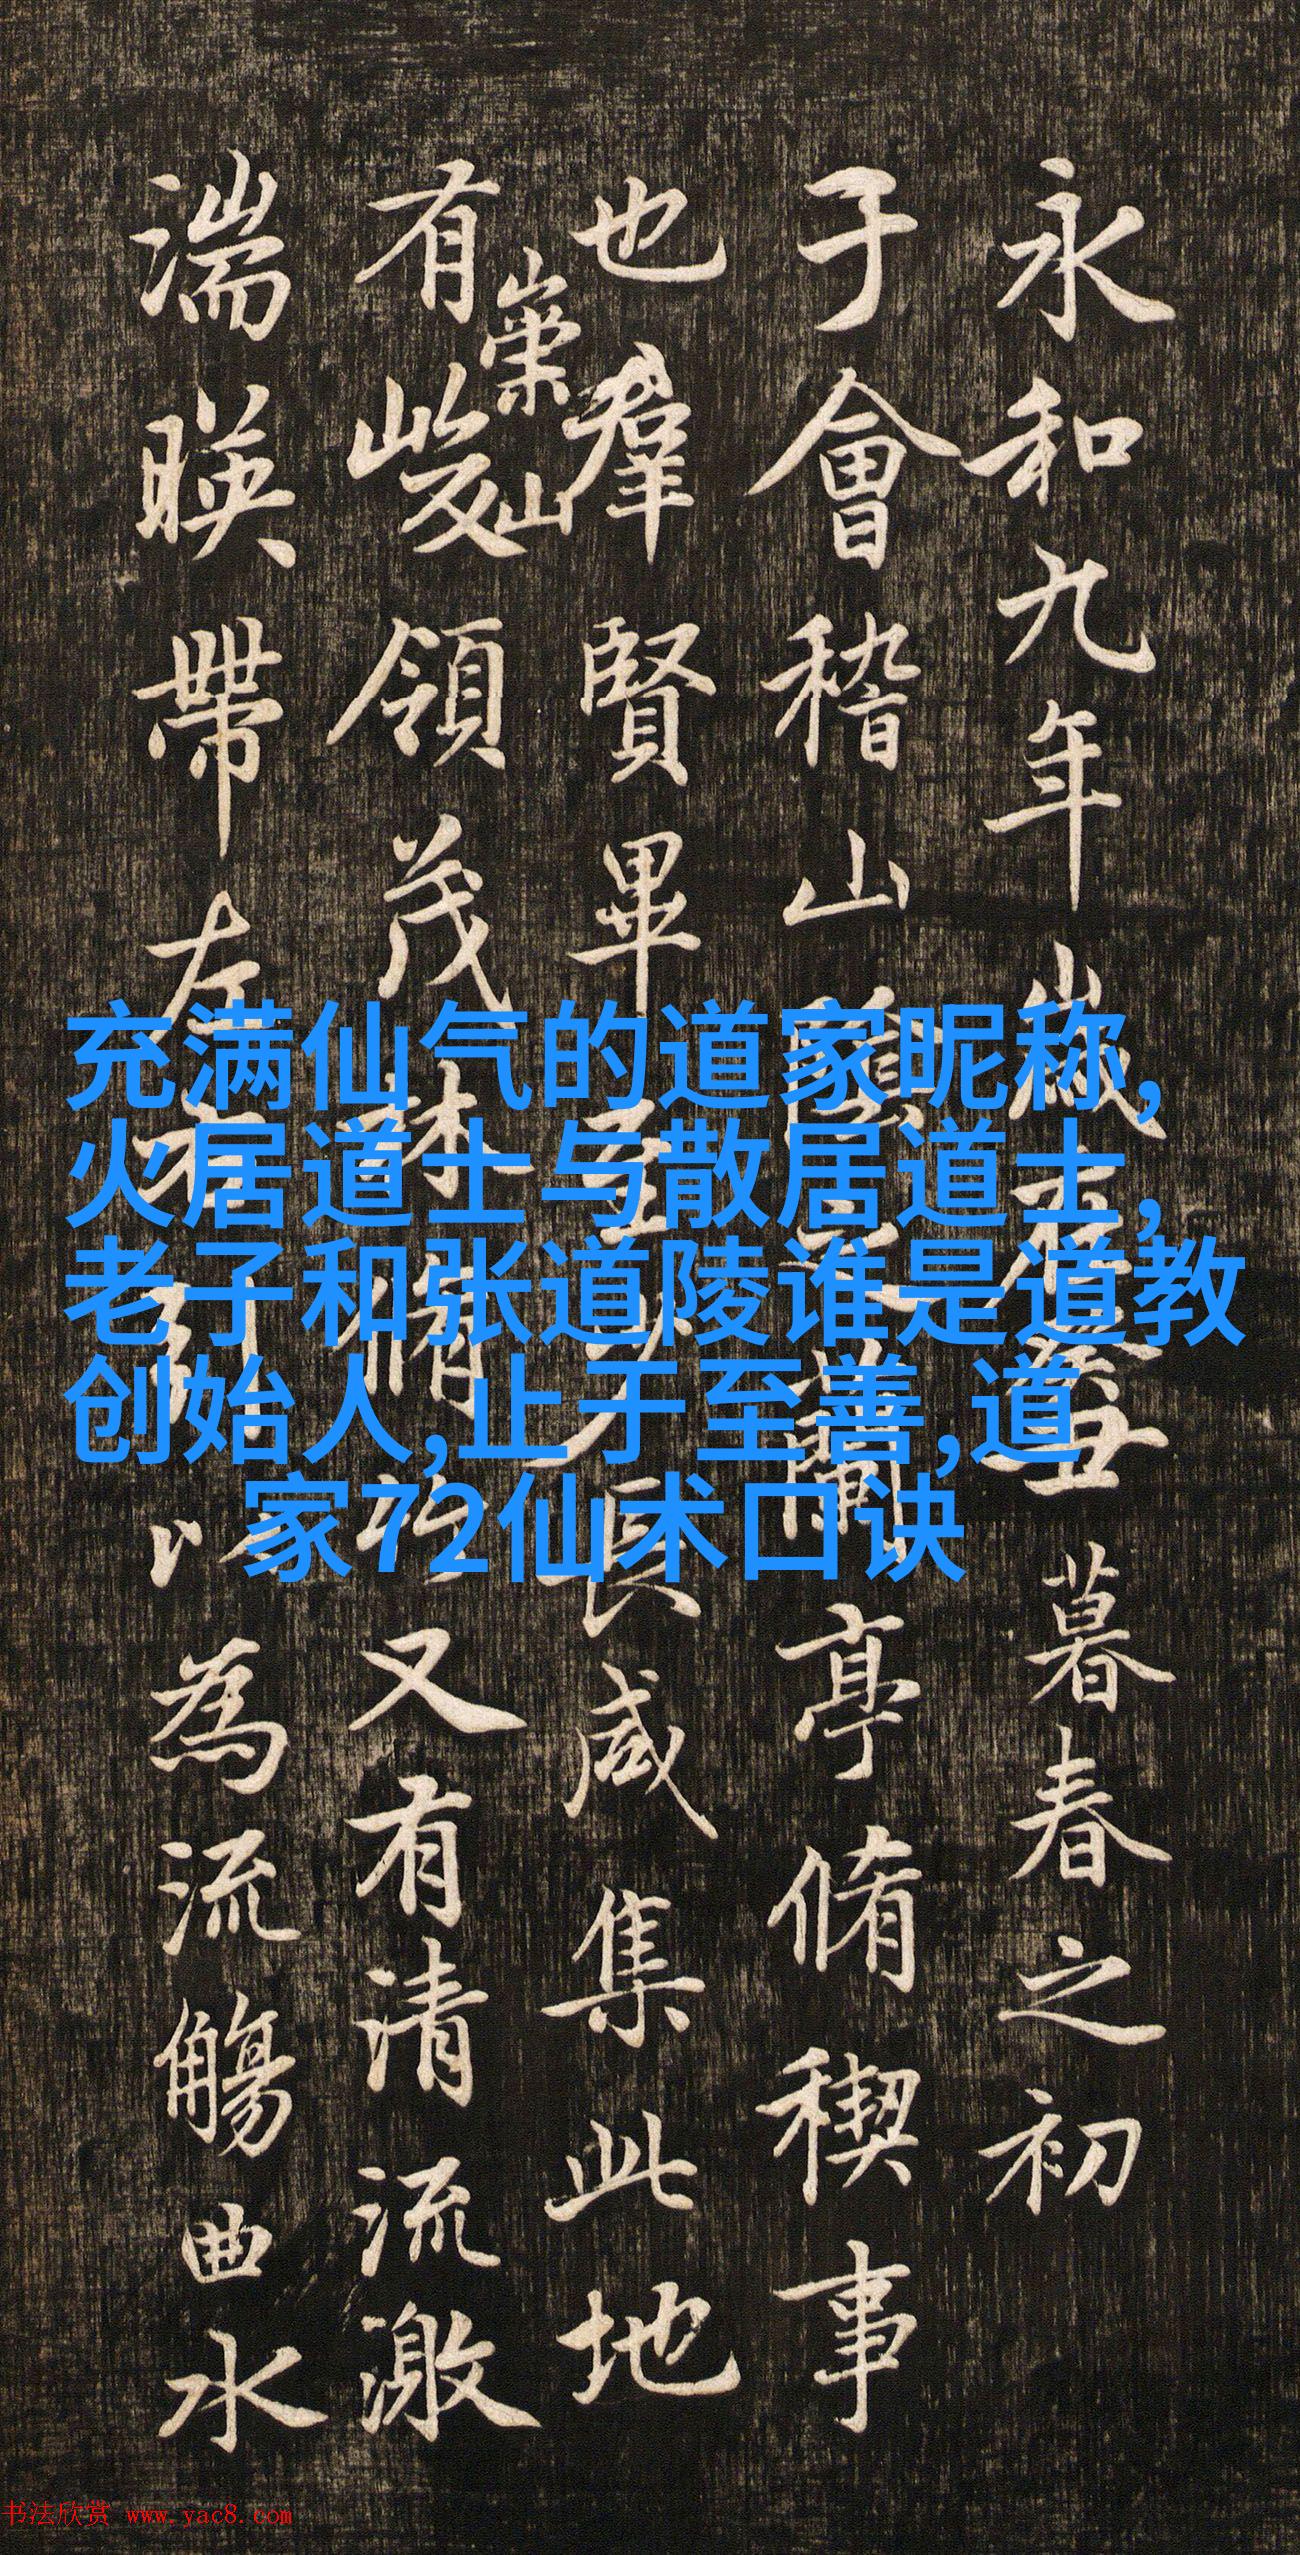 永和九年歲在癸丑暮春之初
于會稽山陰之蘭亭脩禊事
也羣賢畢至少長咸集此地
有崇山峻領茂林脩竹又有清流激
湍暎帶左右引以為流觴曲水
充满仙气的道家昵称,
火居道士与散居道士,
老子和张道陵谁是道教
创始人,止于至善,道
家72仙术口诀
书法欣赏 www.yac8.com